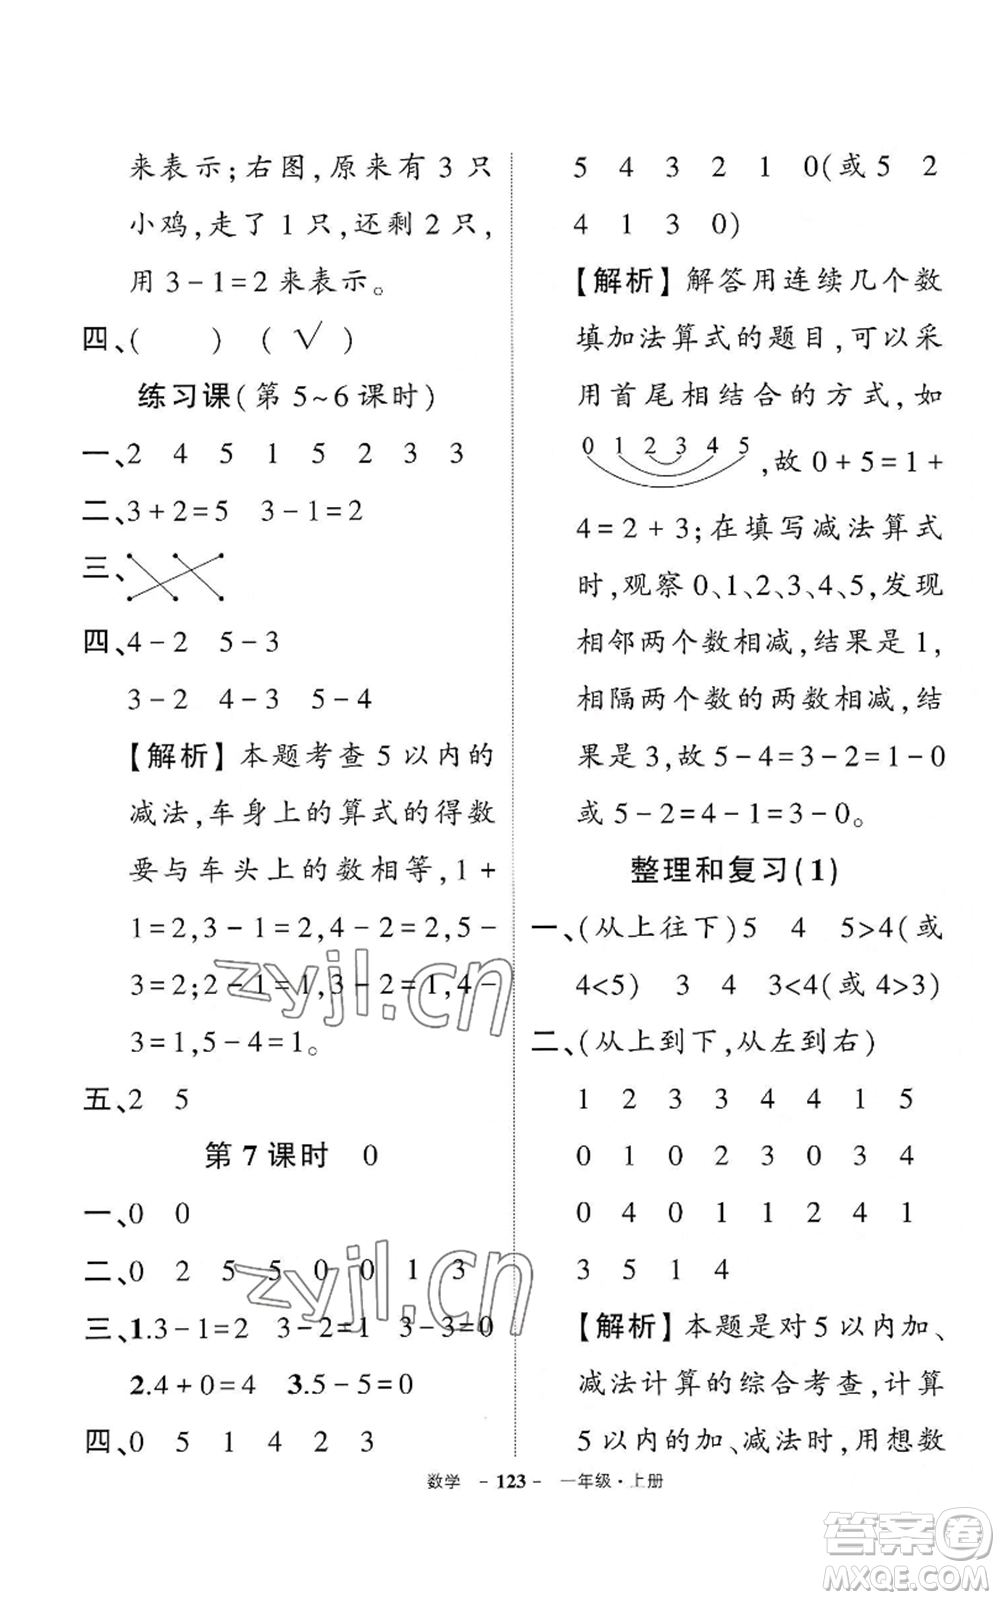 来表示;右图,原来有 3 只
小鸡,走了 1 只,还剩 2 只,
用 3－1=2 来表示。
四、(　　) (√)
练习课(第 5~6 课时)
一、2 4 5 1 5 2 3 3
二、3+2=5 3－1=2
三、
四、4－2 5－3
3－2 4－3 5－4
【解析】本题考查 5 以内的
减法,车身上的算式的得数
要与车头上的数相等,1+
1=2,3－1=2,4－2=2,5－
3=2;2－1=1,3－2=1,4－
3=1,5－4=1。
五、2 5
第 7 课时 0
一、0 0
二、0 2 5 5 0 0 1 3
三、1.3－1=2 3－2=1 3－3=0
2.4+0=4 3.5－5=0
四、0 5 1 4 2 3
5 4 3 2 1 0(或 5 2
4 1 3 0)
【解析】解答用连续几个数
填加法算式的题目,可以采
用首尾相结合的方式,如
0 1 2 3 4 5 ,故 0+5=1+
4=2+3;在填写减法算式
时,观察 0、1、2、3、4、5,发现
相邻两个数相减,结果是 1,
相隔两个数的两数相减,结
果是 3,故 5－4=3－2=1－0
或 5－2=4－1=3－0。
整理和复习(1)
一、(从上往下)5 4 5>4(或
4<5) 3 4 3<4(或 4>3)
二、(从上到下,从左到右)
1 2 3 3 4 4 1 5
0 1 0 2 3 0 3 4
0 4 0 1 1 2 4 1
3 5 1 4
【解析】本题是对 5 以内加、
减法计算的综合考查,计算
5 以内的加、减法时,用想数
数学 －123－ 一年级·上册
zyjl.cn
zyjl.cn
答案卷
MXQE.COM